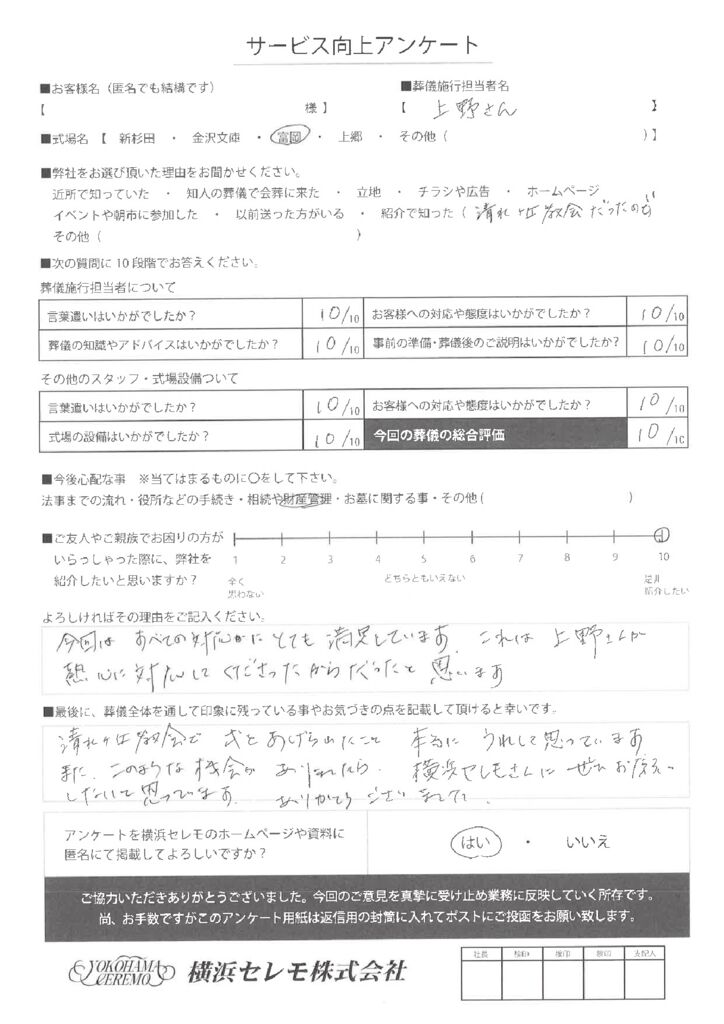 サービス向上アンケート
■お客様名（匿名でも結構です）
【 様 】
■葬儀施行担当者名
【 上野さん 】
■式場名 【 新杉田 ・ 金沢文庫 ・ 富岡 ・ 上郷 ・ その他（ ）】
■弊社をお選び頂いた理由をお聞かせください。
近所で知っていた ・ 知人の葬儀で会葬に来た ・ 立地 ・ チラシや広告 ・ ホームページ
イベントや朝市に参加した ・ 以前送った方がいる ・ 紹介で知った（ 清水ヶ丘教会だったので ）
その他（ ）
■次の質問に 10 段階でお答えください。
葬儀施行担当者について
言葉遣いはいかがでしたか？ 10/10 お客様への対応や態度はいかがでしたか？ 10/10
葬儀の知識やアドバイスはいかがでしたか？ 10/10 事前の準備・葬儀後のご説明はいかがでしたか？ 10/10
その他のスタッフ・式場設備ついて
言葉遣いはいかがでしたか？ 10/10 お客様への対応や態度はいかがでしたか？ 10/10
式場の設備はいかがでしたか？ 10/10 今回の葬儀の総合評価 10/10
■今後心配な事 ※当てはまるものに〇をして下さい。
法事までの流れ・役所などの手続き・相続や財産管理・お墓に関する事・その他（ ）
■ご友人やご親族でお困りの方が
いらっしゃった際に、弊社を
紹介したいと思いますか？
1 2 3 4 5 6 7 8 9 10
全く
思わない
どちらともいえない
是非
紹介したい
よろしければその理由をご記入ください。
今回は すべての対応にとても満足しています。これは上野さんが
熱心に対応してくださったからだったと思います
■最後に、葬儀全体を通して印象に残っている事やお気づきの点を記載して頂けると幸いです。
清水ヶ丘教会で 式をあげられたこと 本当に うれしく思っています
また、このような機会が ありましたら、横浜セレモさんに ぜひ お願い
したいと思っています。ありがとうございました。
アンケートを横浜セレモのホームページや資料に
匿名にて掲載してよろしいですか？
はい ・ いいえ
ご協力いただきありがとうございました。今回のご意見を真摯に受け止め業務に反映していく所存です。
尚、お手数ですがこのアンケート用紙は返信用の封筒に入れてポストにご投函をお願い致します。
YOKOHAMA
CEREMO
横浜セレモ株式会社
社長 検印 検印 検印 支配人